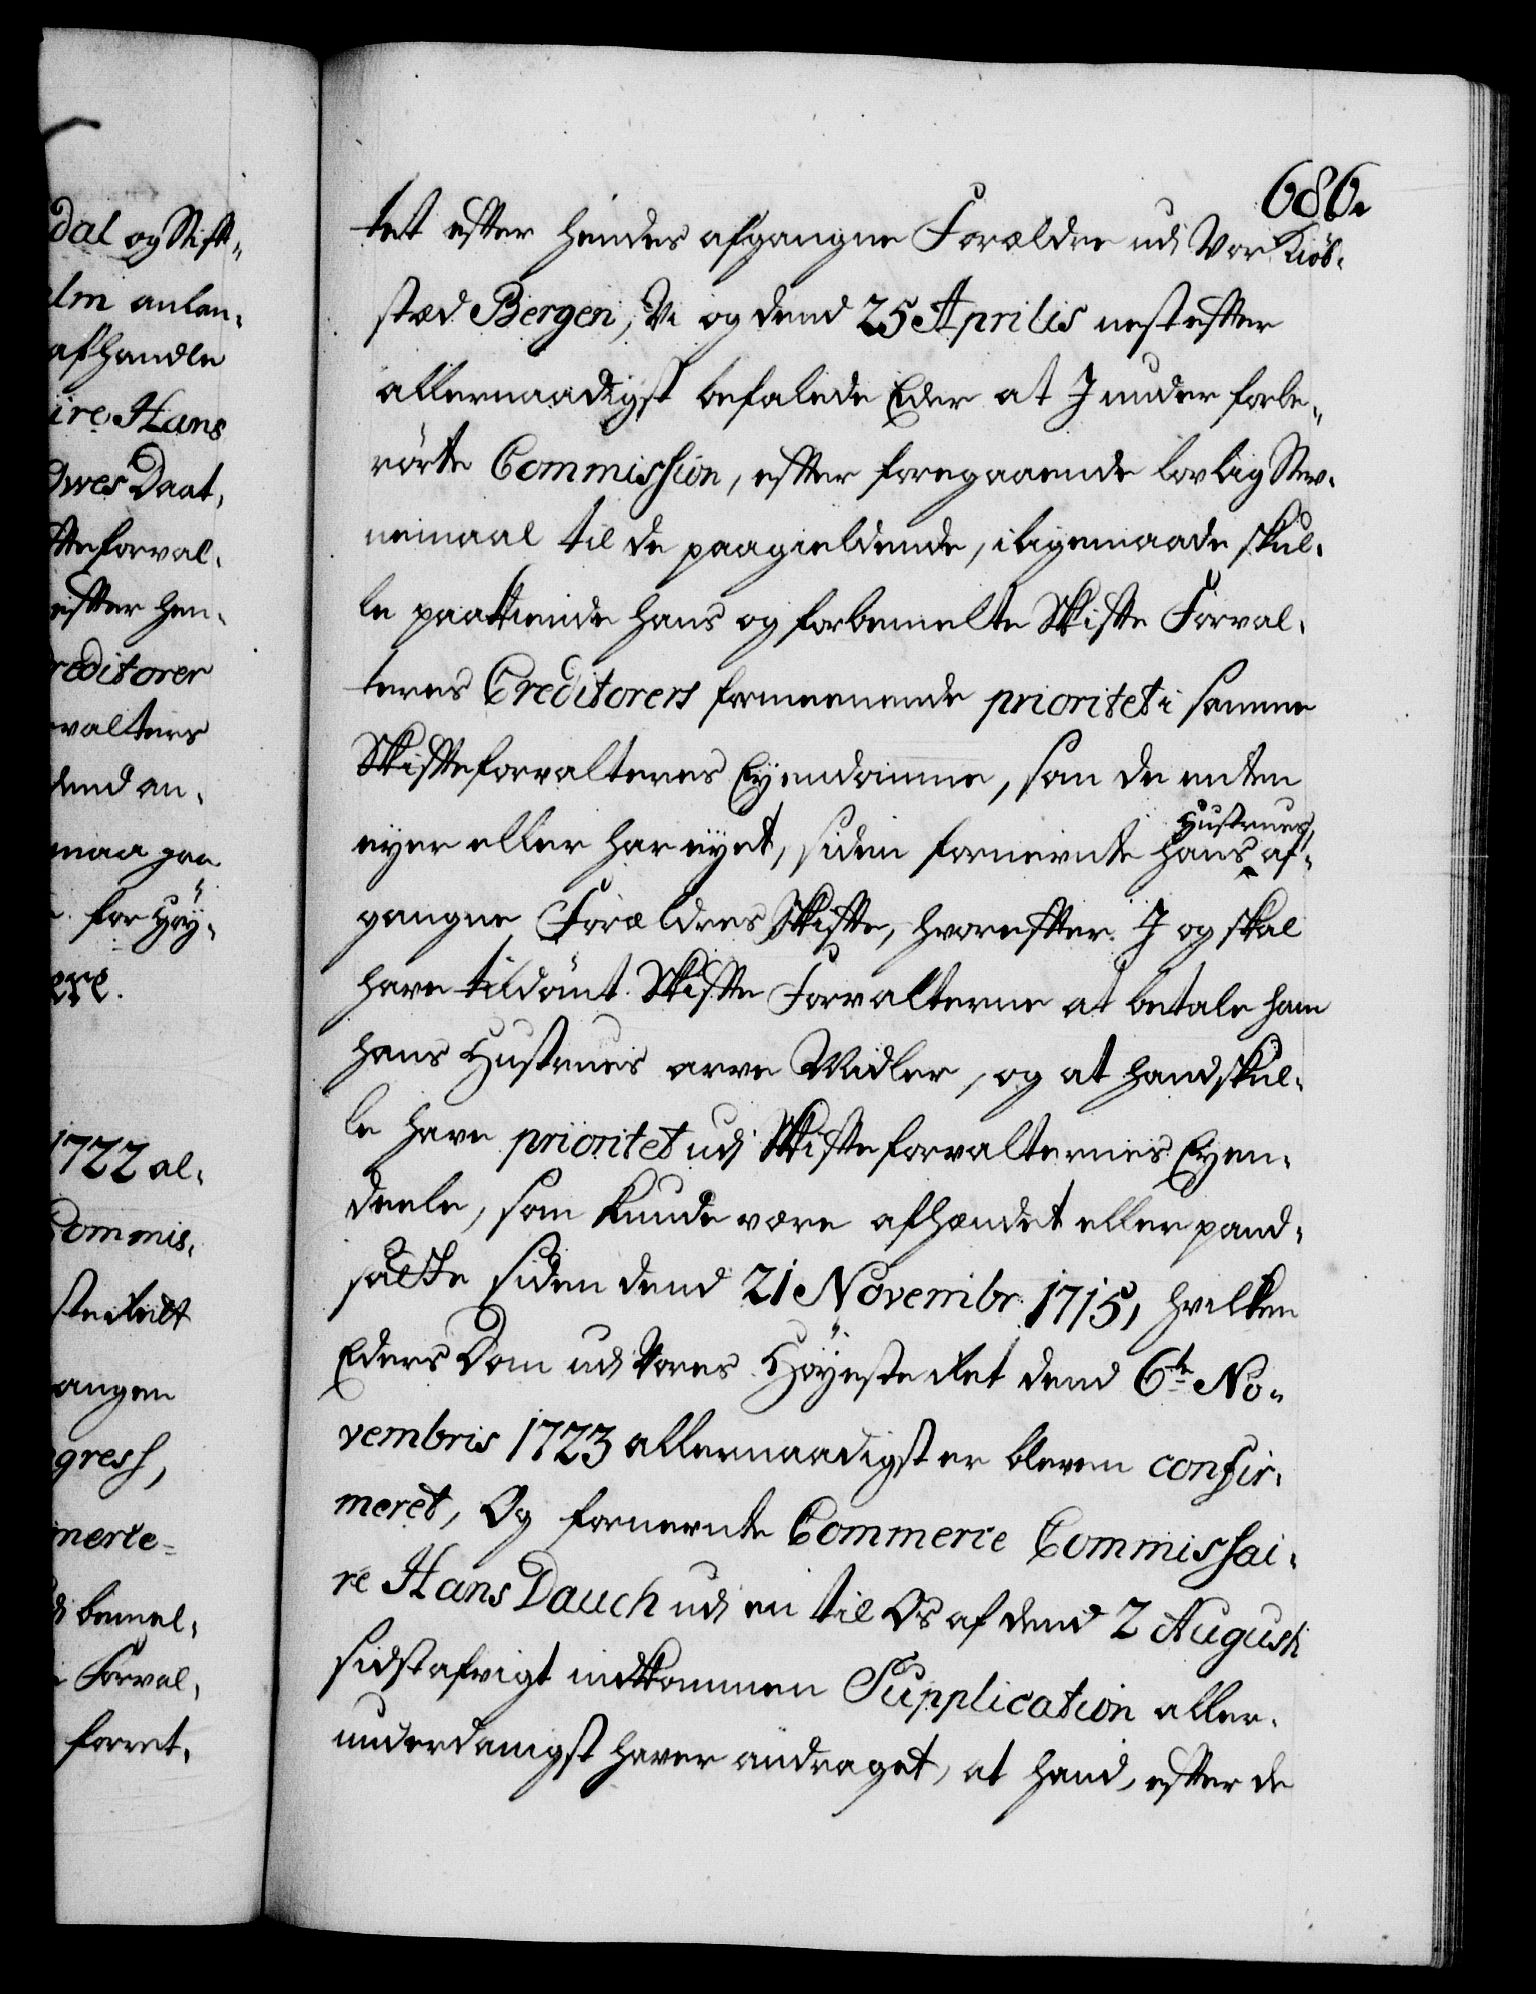 dal og Stift-
elm anlan-
afhandle
ire Hans
Dwes Daat-
fteforval-
efter hen-
reditorer
valters
dend an-
maa paa
for Høy-
ere.
1722 al-
Commis-
ste Rett
angen
gress,
merce-
di bemel-
Forval-
forret-
686.
tet efter hendes afgangne Forældre udi Vor Kiöb-
stæd Bergen, Vi og dend 25 Aprilis nest efter
allernaadigst befalede Eder at I under forbe-
rörte Commission, efter foregaaende lovlig Stev-
nemaal til de paagieldende, iligemaade skul-
le paakiende hans og forbemelte Skifte Forval-
teres Creditorers formeenende prioritet i samme
Skifteforvalteres Eyendomme, som de enten
eyer eller har eyet, siden fornevnte hans Hustrues af-
gangne Forældres Skifte, hvorefter I og skal
have tildömt Skifte Forvalterne at betale ham
hans Hustrues arve Midler, og at hand skul-
le have prioritet udi Skifteforvalternes Eyen-
deele, som kunde være afhændet eller pand-
satte siden dend 21 Novembr. 1715, hvilken
Eders Dom udi Vores Höyeste Ret dend 6te No-
vembris 1723 allernaadigst er bleven confir-
meret, Og fornevnte Commerce Commissai-
re Hans Dauch udi en til Os af dend 2 Augusti
sidstafvigt indkommen Supplication aller-
underdanigst haver andraget, at hand, efter de